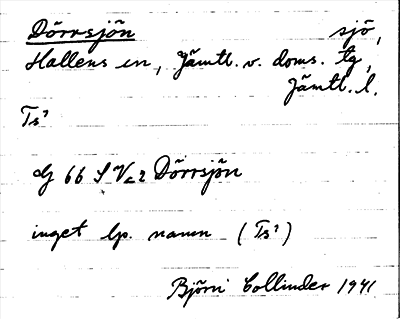 Dörrsjön sjö,
Hallens sn, Jämtl. v. doms. tg,
Jämtl. l.
Ts?
dg 66 S V c 2 Dörrsjön
inget lp. namn (Ts?)
Björn Collinder 1941